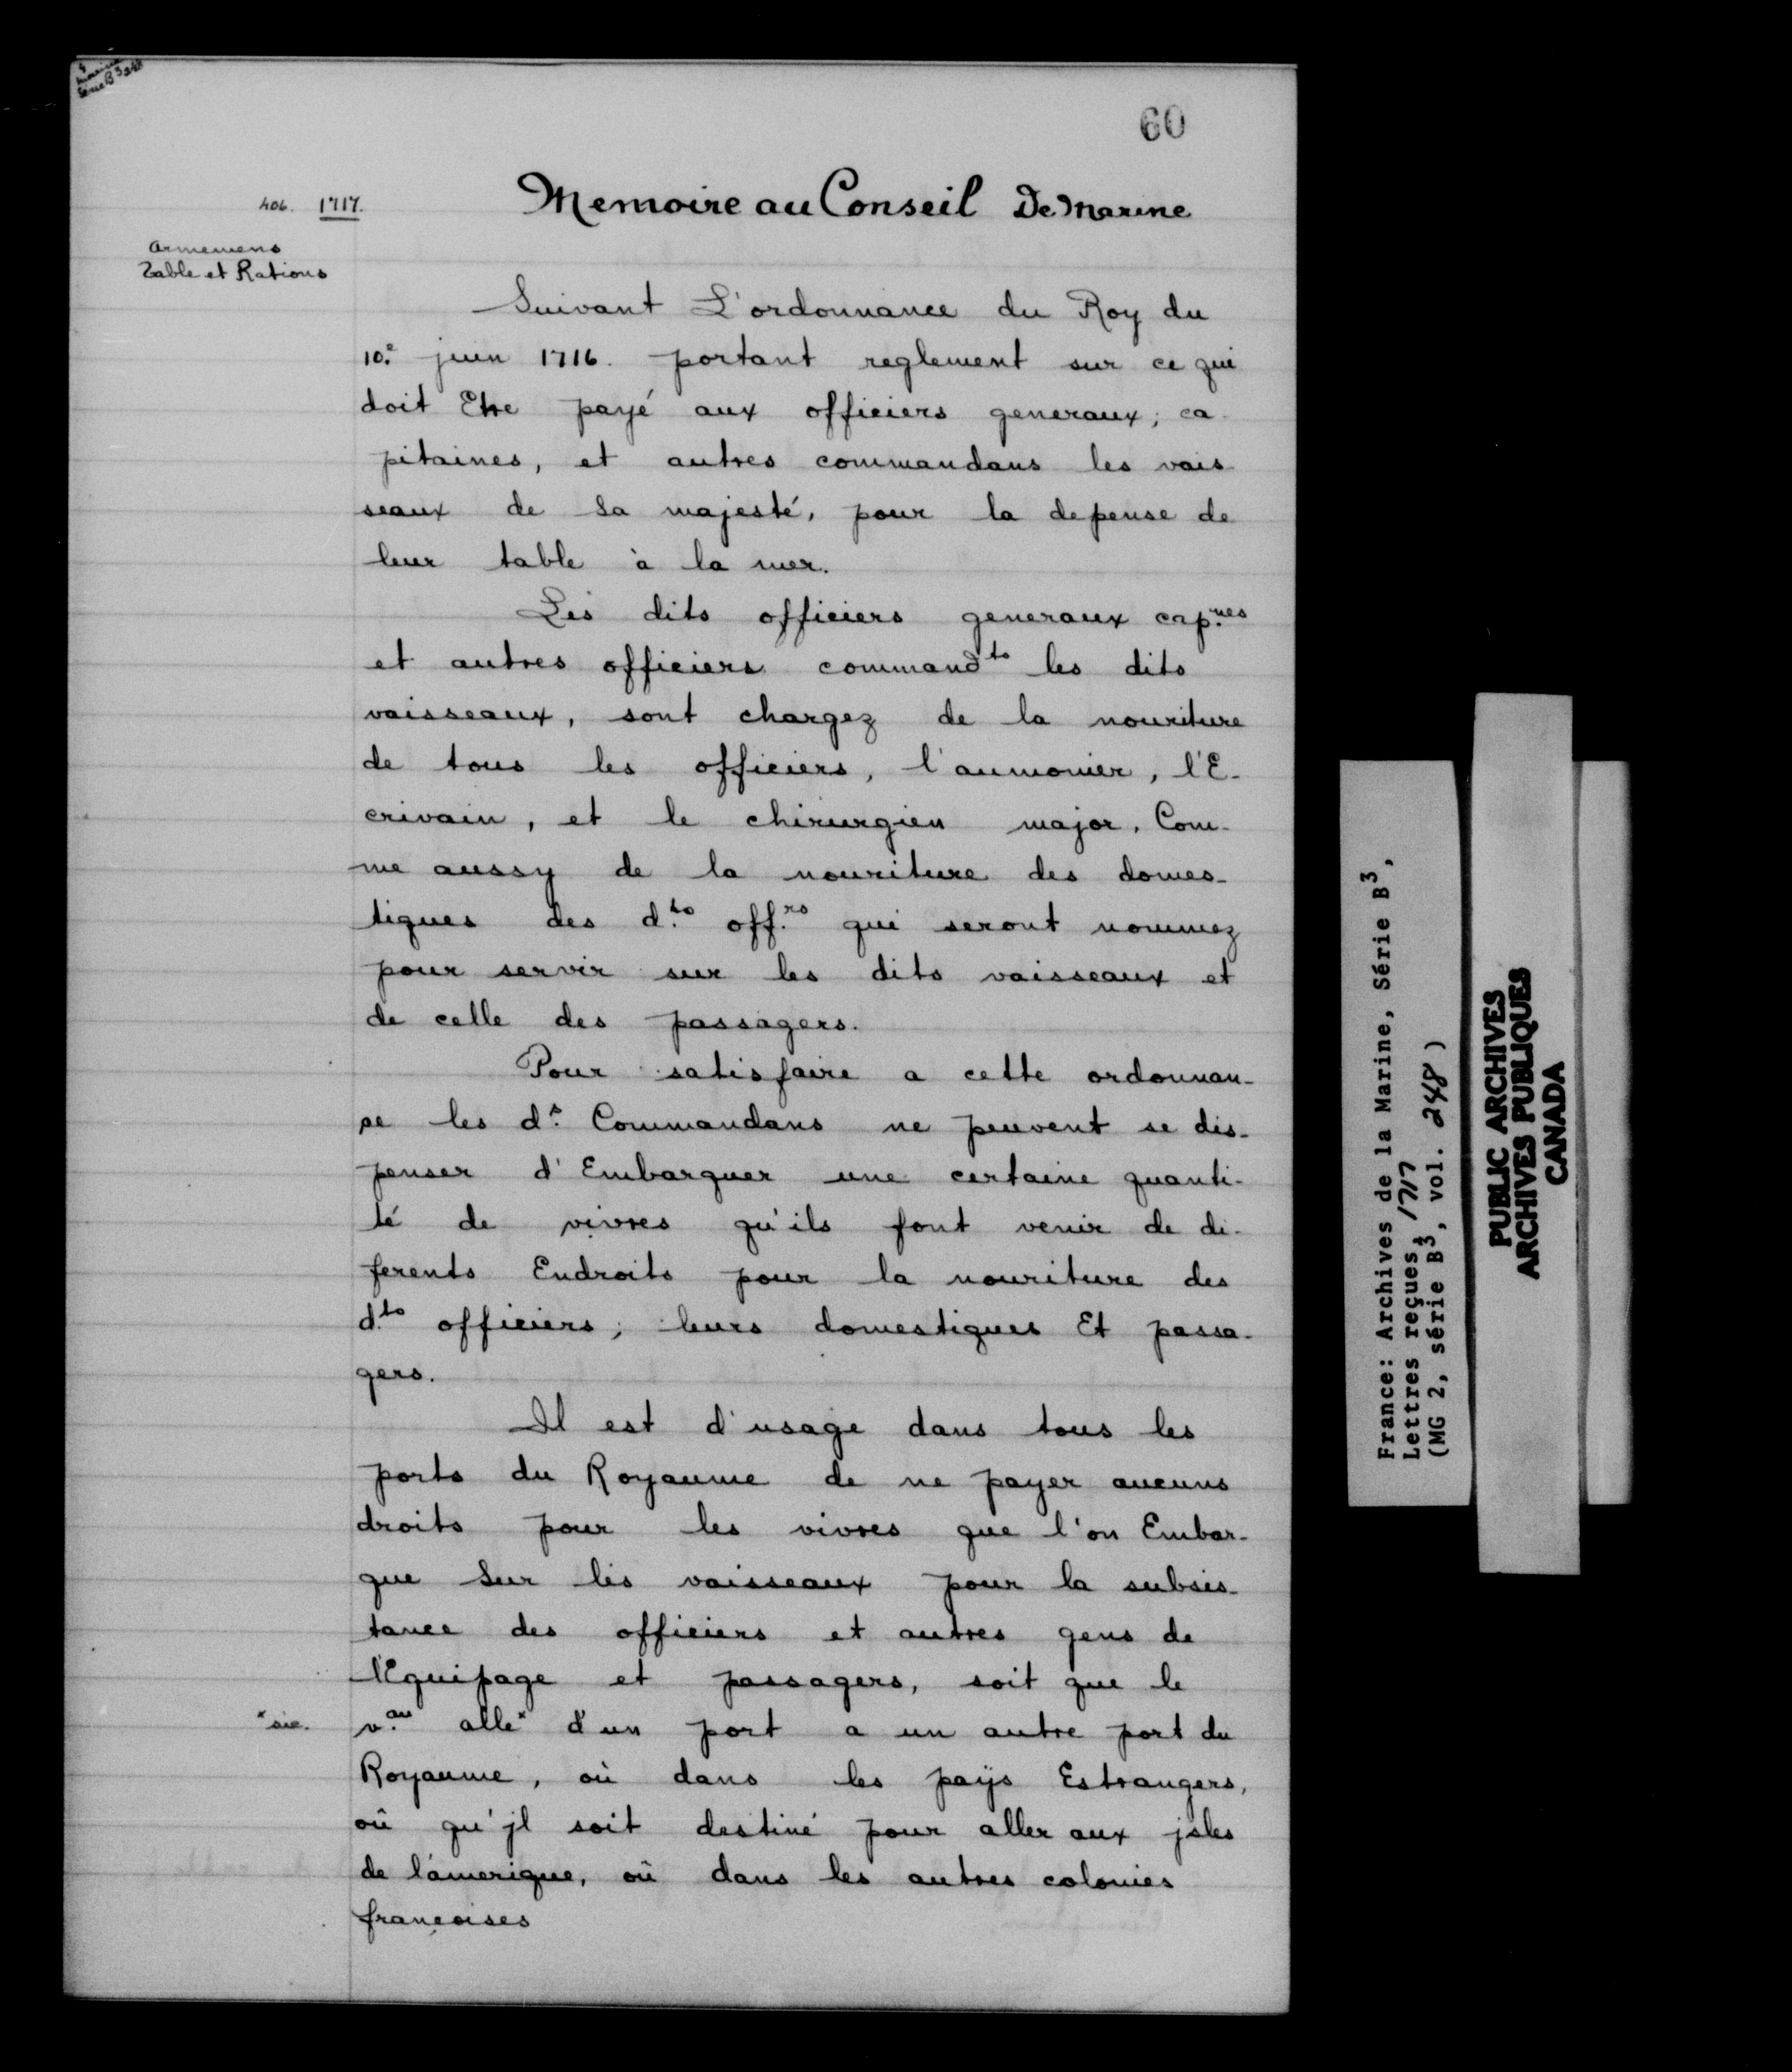 4
marine
Serie B³ 248
60
406. 1717.
Memoire au Conseil De Marine
Armemens
Table et Rations
Suivant L'ordonnance du Roy du
10.e juin 1716. portant reglement sur ce qui
doit Etre payé aux officiers generaux, ca
pitaines, et autres commandans les vais
seaux de Sa majesté, pour la depense de
leur table à la mer.
Les dits officiers generaux cap.nes
et autres officiers command.ts les dits
vaisseaux, sont chargez de la nouriture
de tous les officiers, l'aumonier, l'E-
crivain, et le chirurgien major. Com-
me aussy de la nouriture des domes-
tiques des d.ts off.rs qui seront nommez
pour servir sur les dits vaisseaux et
de celle des passagers.
Pour satisfaire a cette ordonnan-
ce les d.s Commandans ne peuvent se dis-
penser d'Embarquer une certaine quanti-
té de vivres qu'ils font venir de di-
ferents Endroits pour la nouriture des
d.ts officiers, leurs domestiques Et passa-
gers.
Il est d'usage dans tous les
ports du Royaume de ne payer aucuns
droits pour les vivres que l'on Embar-
que Sur les vaisseaux pour la subsis-
tance des officiers et autres gens de
l'Equipage et passagers, soit que le
*sic. v.au alle* d'un port a un autre port du
Royaume, où dans les païs Estrangers,
où qu'jl soit destiné pour aller aux jsles
de l'amerique, où dans les autres colonies
françoises
France: Archives de la Marine, Série B3,
Lettres reçues, 1717
(MG 2, série B3, vol. 248)
PUBLIC ARCHIVES
ARCHIVES PUBLIQUES
CANADA